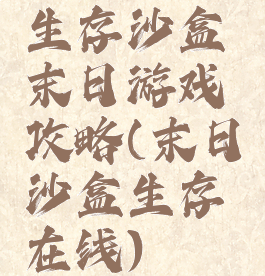 生存沙盒
末日游戏
攻略(末日
沙盒生存
在线)